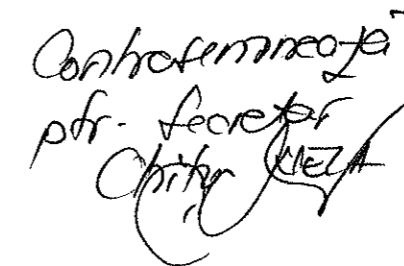 Contrasemnează
ptr. Secretar
Chițu